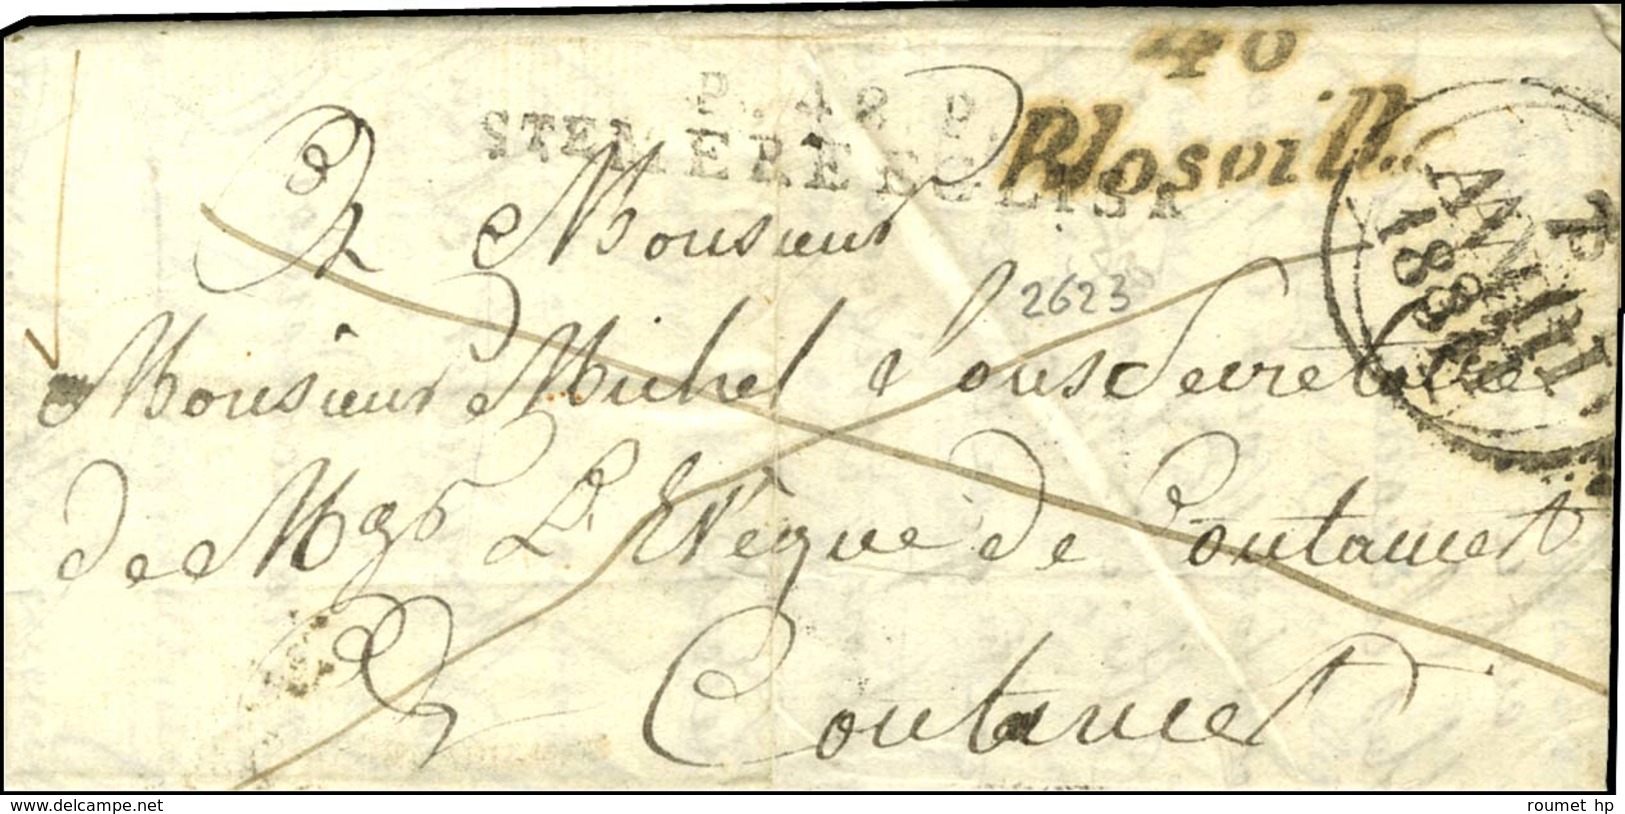 40
P. 48 P.
STE MERE EGLISE
Blosville
AVRIL
183
A Monsieur
2623
Monsieur Michel Sous Secretaire
de Mgr L. Evêque de Coutances
A Coutances
www.delcampe.net
roumet hp